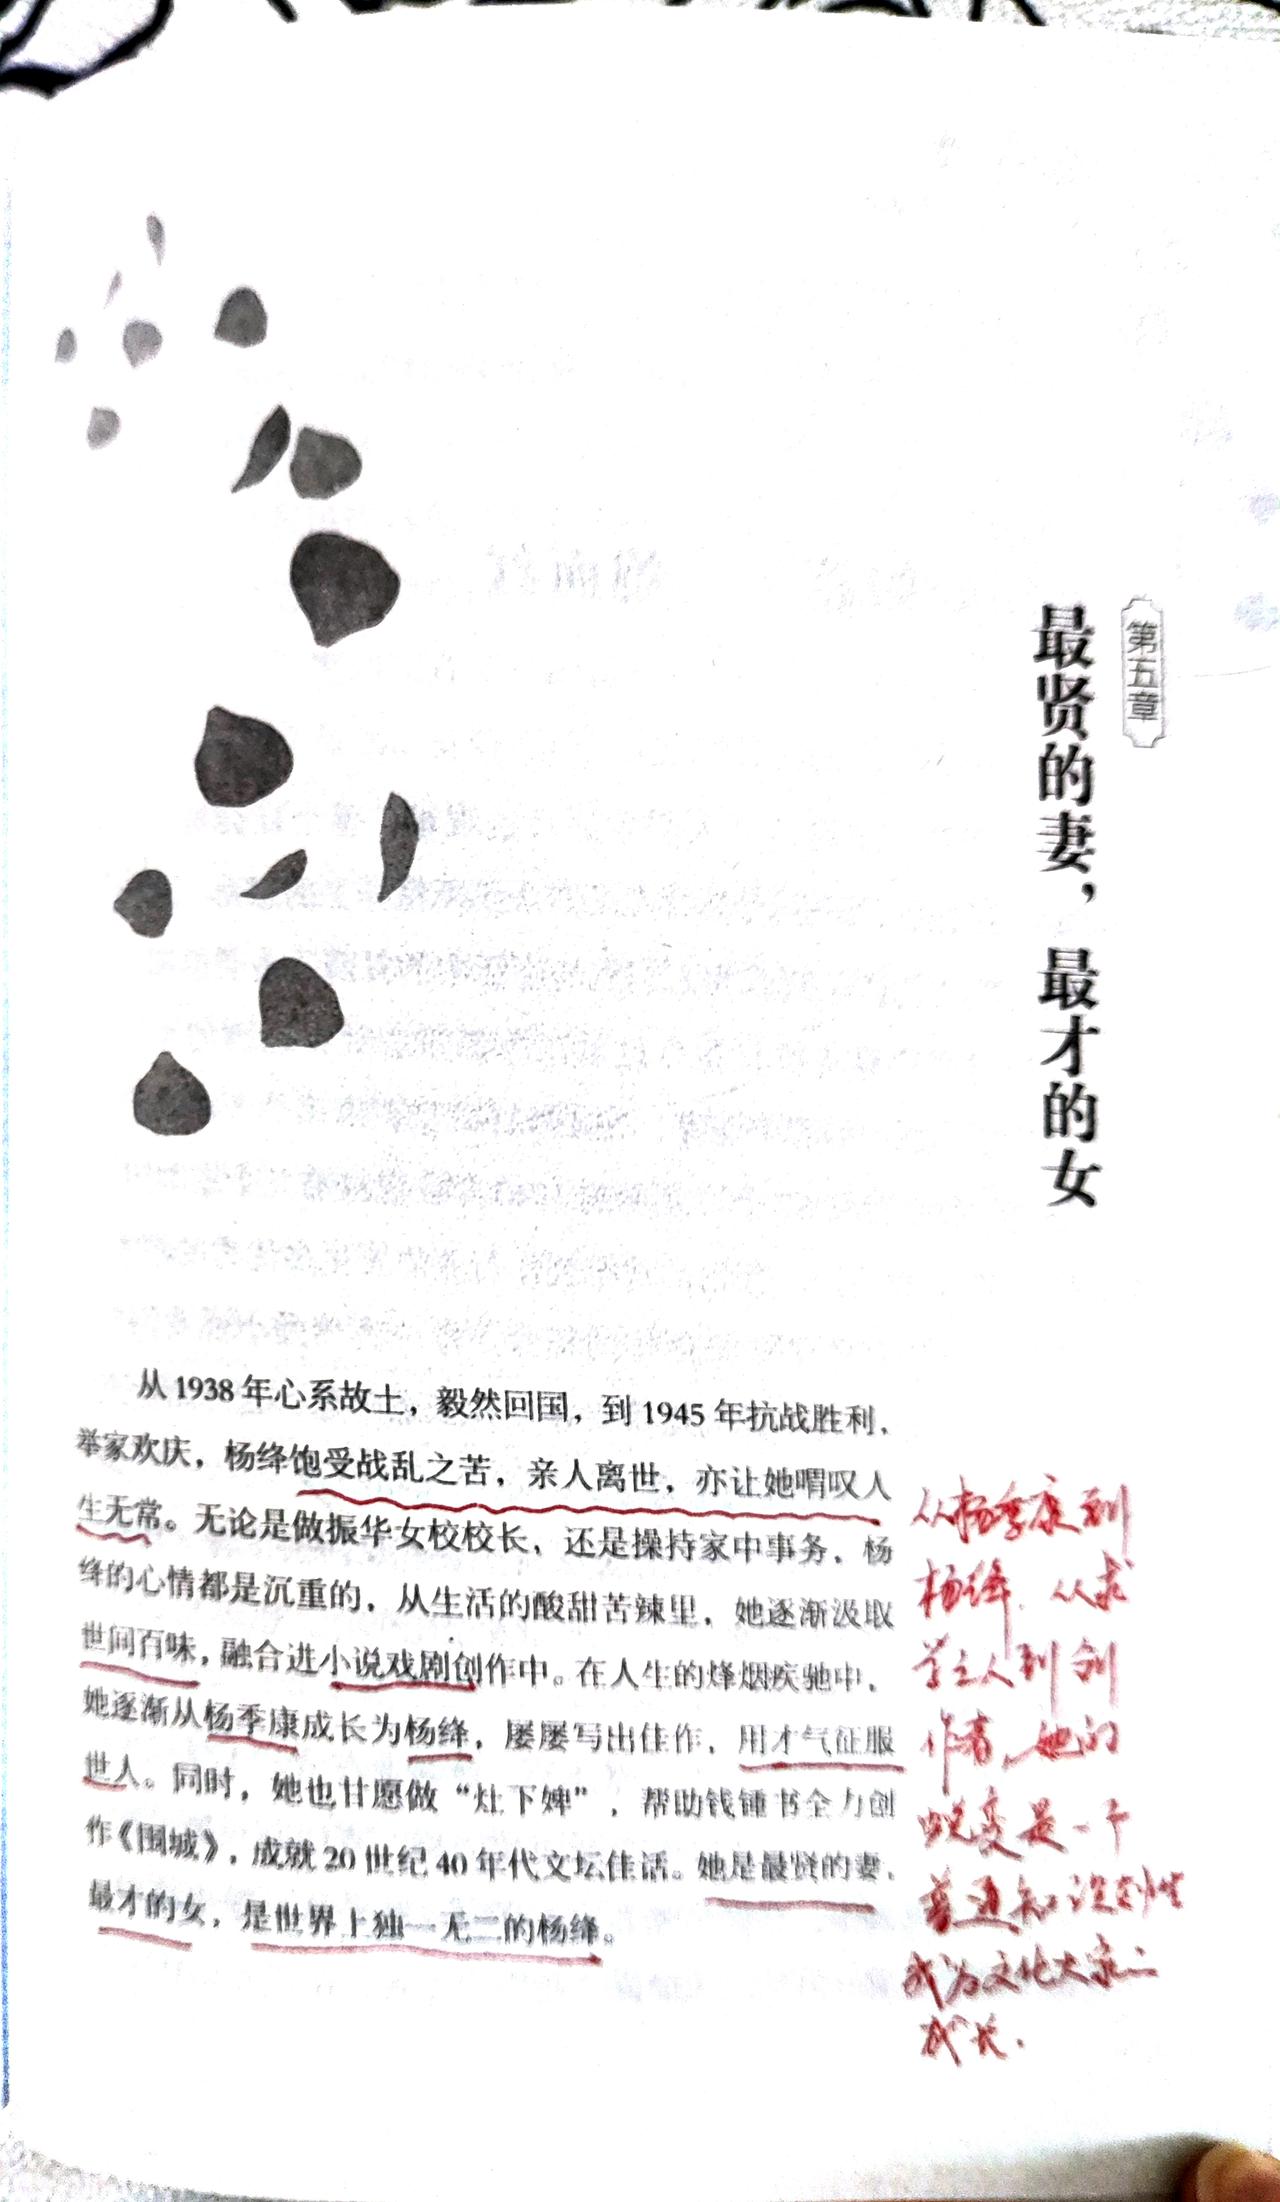 第五章
最贤的妻，最才的女
从1938年心系故土，毅然回国，到1945年抗战胜利，
举家欢庆，杨绛饱受战乱之苦，亲人离世，亦让她喟叹人
生无常。无论是做振华女校校长，还是操持家中事务，杨
绛的心情都是沉重的，从生活的酸甜苦辣里，她逐渐汲取
世间百味，融合进小说戏剧创作中。在人生的烽烟疾驰中，
她逐渐从杨季康成长为杨绛，屡屡写出佳作，用才气征服
世人。同时，她也甘愿做“灶下婢”，帮助钱锺书全力创
作《围城》，成就20世纪40年代文坛佳话。她是最贤的妻，
最才的女，是世界上独一无二的杨绛。
从杨季康到
杨绛，从求
学之人到创
作者，她的
蜕变是一个
普通知识女性
成为文化大家之
成长.